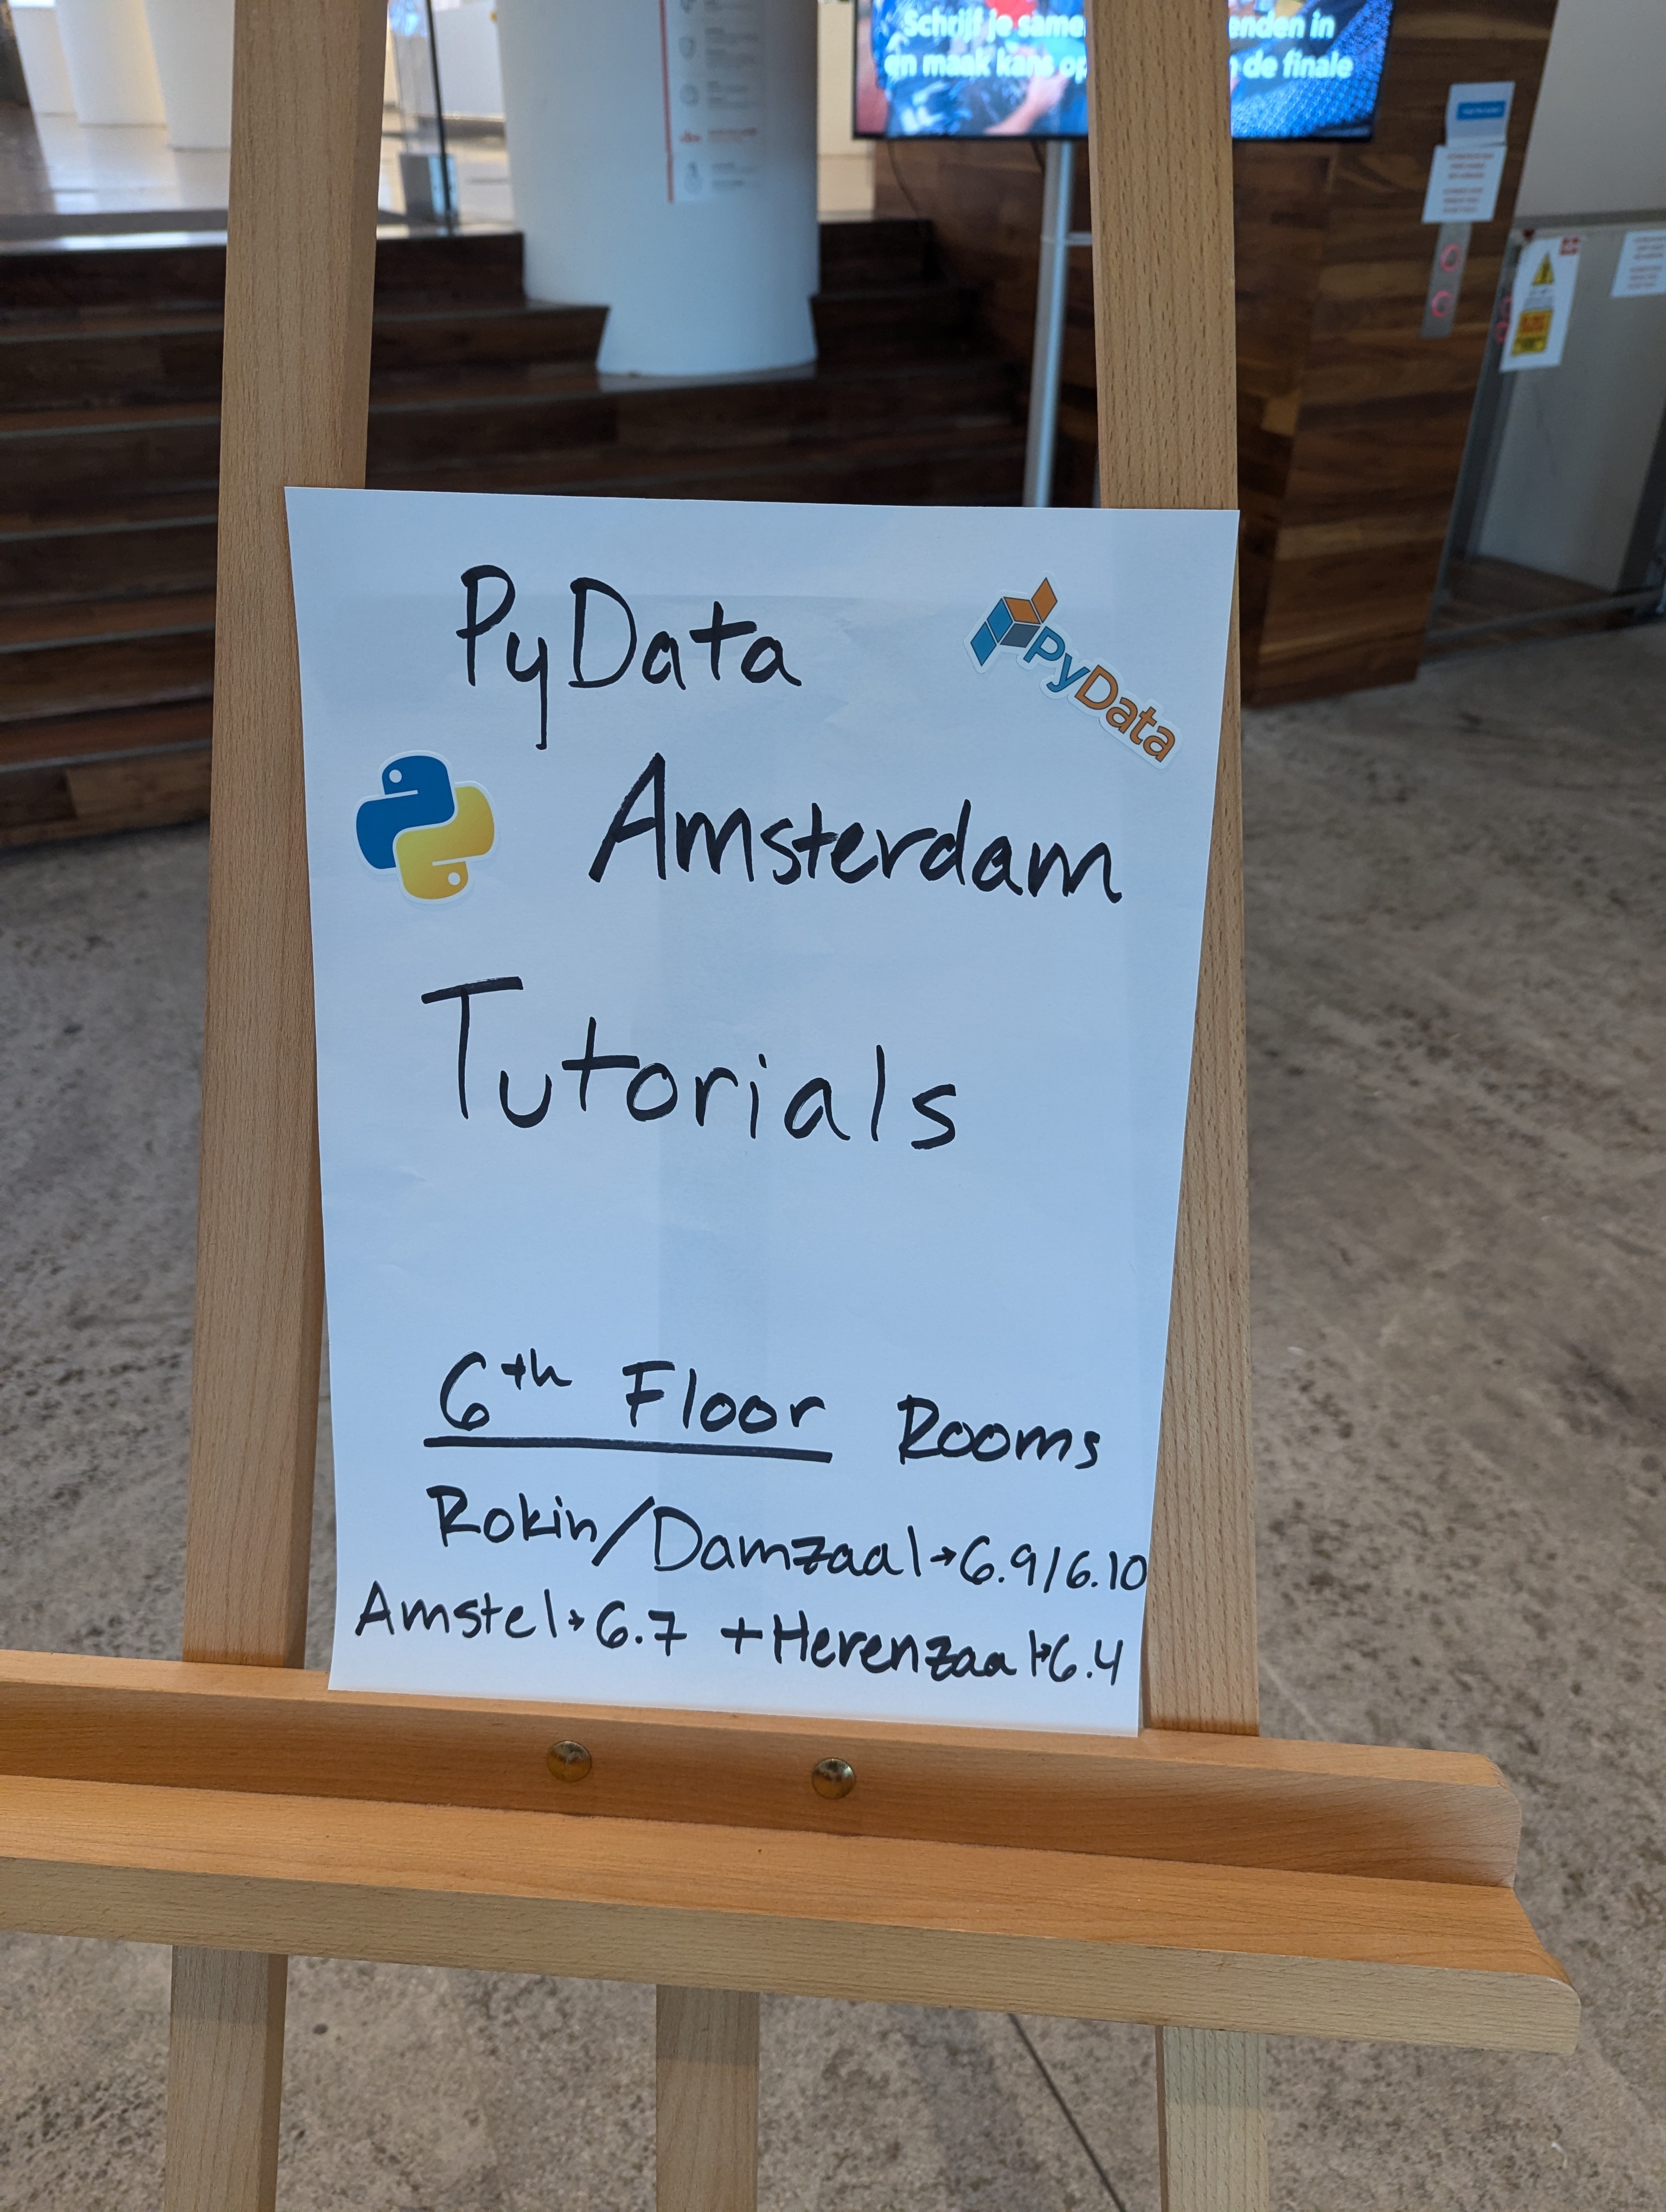 Schrijf je same enden in
en maak kans op de finale
PyData
PyData
Amsterdam
Tutorials
6th Floor Rooms
Rokin/Damzaal→6.9/6.10
Amstel→6.7 +Herenzaal→6.4